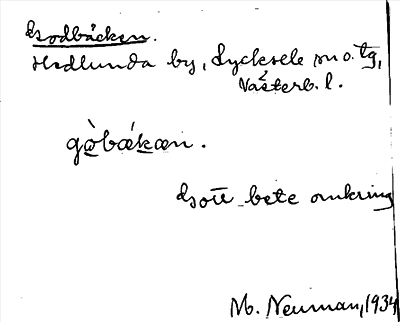 Godbäcken.
Hedlunda by, Lycksele sn o. tg,
Västerb. l.
gòbákæn.
Gott bete omkring
M. Neuman, 1934